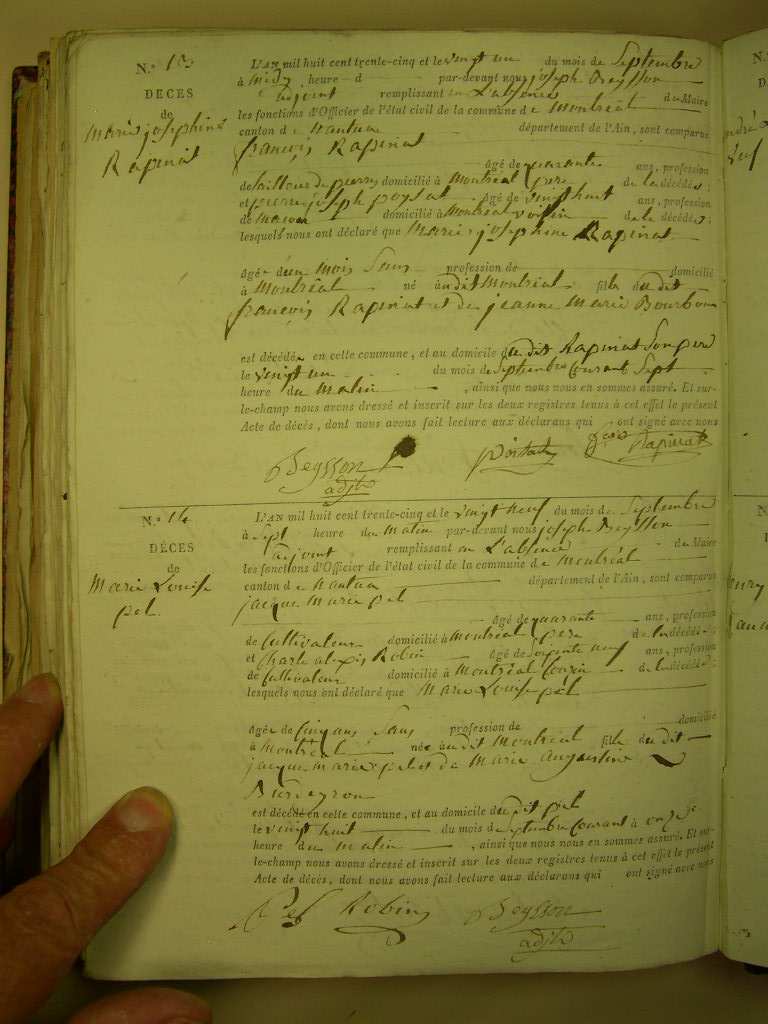 N.o 13
DECES
de
Marie josephine
Rapinat
L'AN mil huit cent trente-cinq et le vingt un du mois de Septembre
à midy heure d par-devant nous joseph Beysson
adjoint remplissant en L'absence du Maire
les fonctions d'Officier de l'état civil de la commune de Montréal
canton de Nantua département de l'Ain, sont comparus
françois Rapinat
âgé de quarante ans, profession
de tailleur de pierres domicilié à Montréal père de la décédée ;
et pierre joseph poysat âgé de vingt huit ans, profession
de maçon domicilié à Montréal voisin de la décédée ;
lesquels nous ont déclaré que Marie josephine Rapinat
âgée d'un mois Sans profession de domicilié
à Montréal né audit Montréal fille dudit
françois Rapinat et de jeanne Marie Bourbon
est décédée en cette commune, et au domicile dudit Rapinat Son père
le vingt un du mois de Septembre Courant à Sept
heure du Matin , ainsi que nous nous en sommes assuré. Et sur-
le-champ nous avons dressé et inscrit sur les deux registres tenus à cet effet le présent
Acte de décès, dont nous avons fait lecture aux déclarans qui ont signé avec nous
Beysson
adjt
Rapinat
N.o 14
DÉCES
de
Marie Louise
pel
L'AN mil huit cent trente-cinq et le vingt neuf du mois de Septembre
à Sept heure du matin par-devant nous joseph Beysson
adjoint remplissant en L'absence du Maire
les fonctions d'Officier de l'état civil de la commune de Montréal
canton de Nantua département de l'Ain, sont comparus
jacque Marie pel
âgé de quarante ans, profession
de Cultivateur domicilié à Montréal père de la décédée ;
et Charle Robin âgé de neuf ans, profession
de Cultivateur domicilié à Montréal Cousin de la décédée ;
lesquels nous ont déclaré que Marie Louise pel
âgée de Cinq ans Sans profession de domicilié
à Montréal née audit Montréal fille dudit
jacque marie pel et de Marie Augustine
est décédé en cette commune, et au domicile dudit pel
le vingt huit du mois de Septembre Courant à onze
heure du Matin , ainsi que nous nous en sommes assuré. Et sur-
le-champ nous avons dressé et inscrit sur les deux registres tenus à cet effet le présent
Acte de décès, dont nous avons fait lecture aux déclarans qui ont signé avec nous
Pel Robin Beysson
adjt